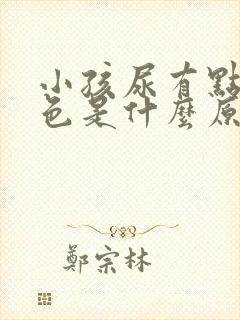 小孩尿有點
色是什麼原
鄭宗林